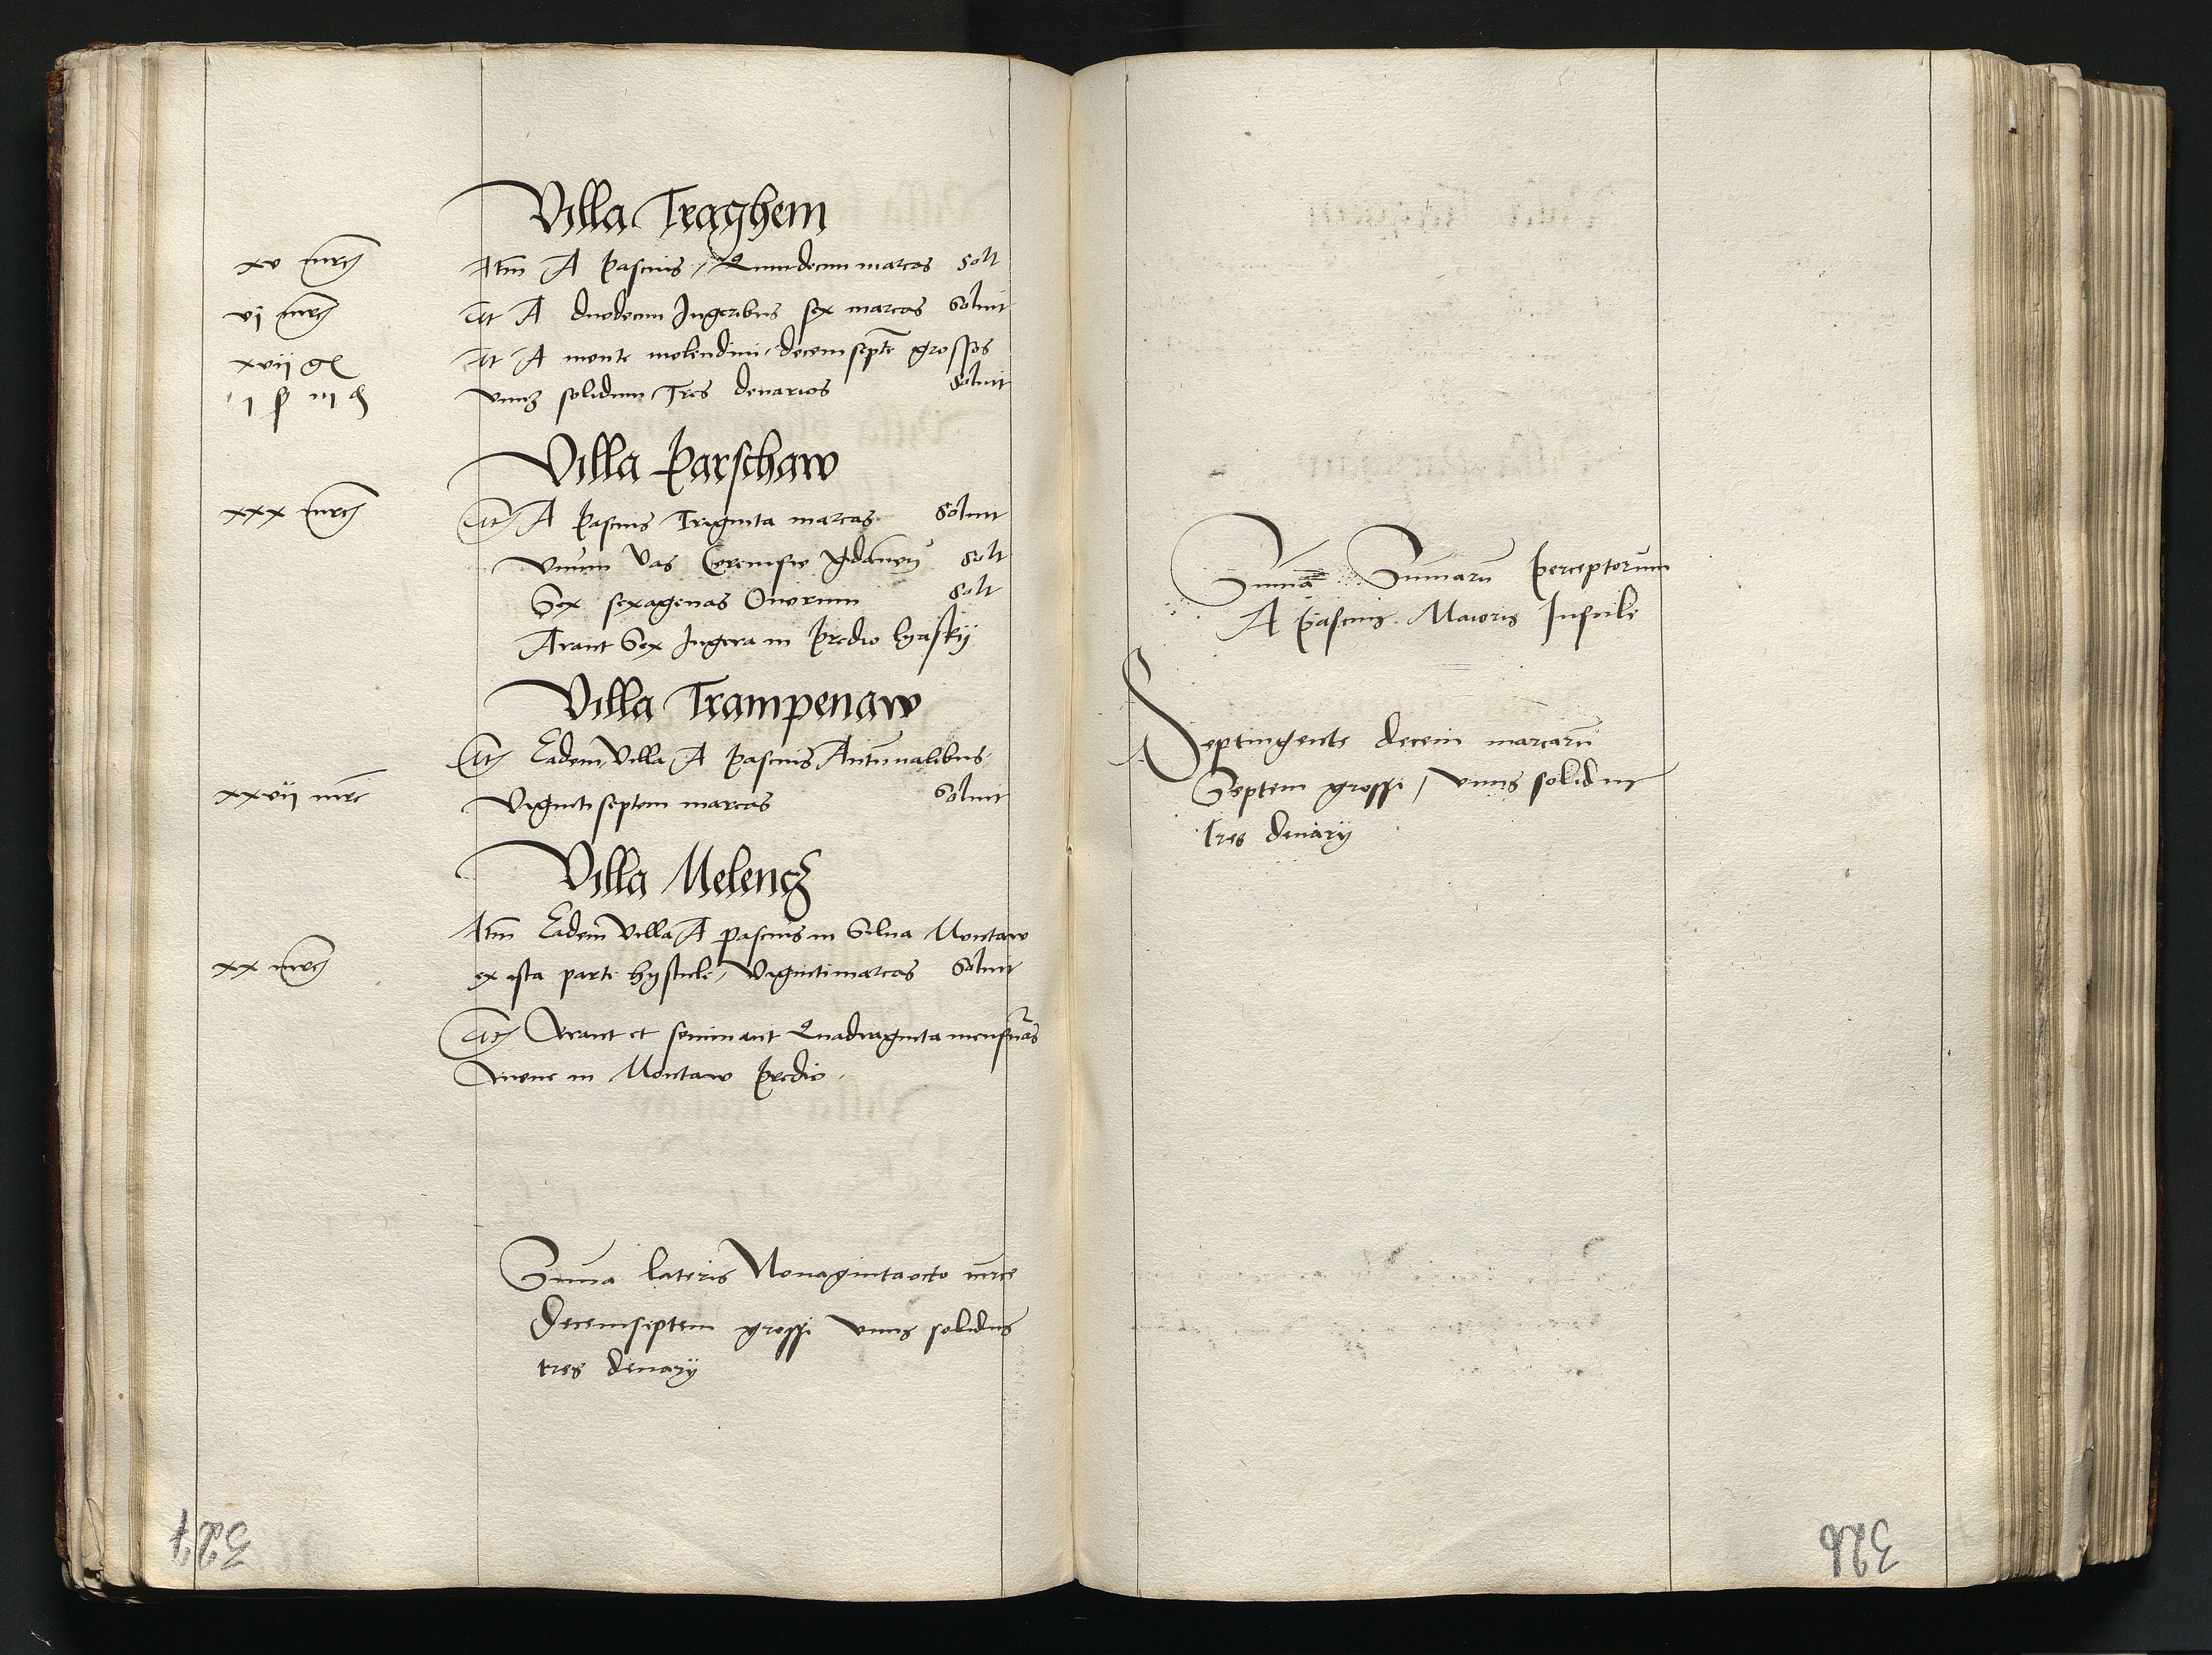 Villa Traghem
xv mrc Itm A pascuis / Quindecim marcas solt
vi mrc It A duodecim Jugeribus sex marcas Soluit
xvii gr It A monte molendini decemseptē grossos
1 ß iii d vnuʒ solidum Tres denarios Soluit
Villa Parschaw
xxx mrc It A Pascuis Triginta marcas Soluit
Vnum Vas Cereuisie gdanen solt
Sex sexagenas Ouorum Solt
Arant Sex Jugera in Predio lyasky
Villa Trampenaw
It Eadem Villa A Pascuis Autūnalibus
xxvii mrc Viginti septem marcas Soluit
Villa Melencz
Itm Eadem Villa A pascuis in Silua Montaw
xx mrc ex ista parte hystule / Viginti marcas Soluit
It Arant et seminant Quadraginta mensuras
Auene in Montaw Predio
Summa lateris Nonagintaocto mrce
Decemseptem grossi vnus solidus
tres denarij
327
Sūma Sūmarū perceptorum
A pascuis Maioris Insule
Septingente decem marcarū
Septem grossi / vnus solidus
tres denarij
326